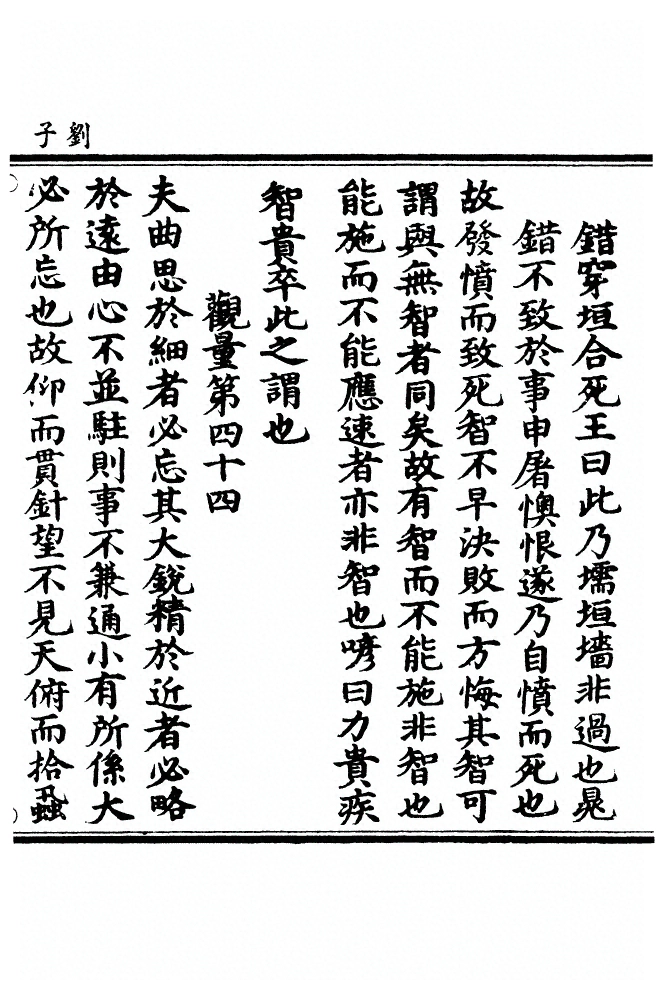 劉子
錯穿垣合死王曰此乃壖垣墻非過也晁
錯不致於事申屠懊恨遂乃自憤而死也
故發憤而致死智不早決敗而方悔其智可
謂與無智者同矣故有智而不能施非智也
能施而不能應速者亦非智也喭曰力貴疾
智貴卒此之謂也
觀量第四十四
夫曲思於細者必忘其大銳精於近者必略
於遠由心不並駐則事不兼通小有所係大
必所忘也故仰而貫針望不見天俯而拾蝨